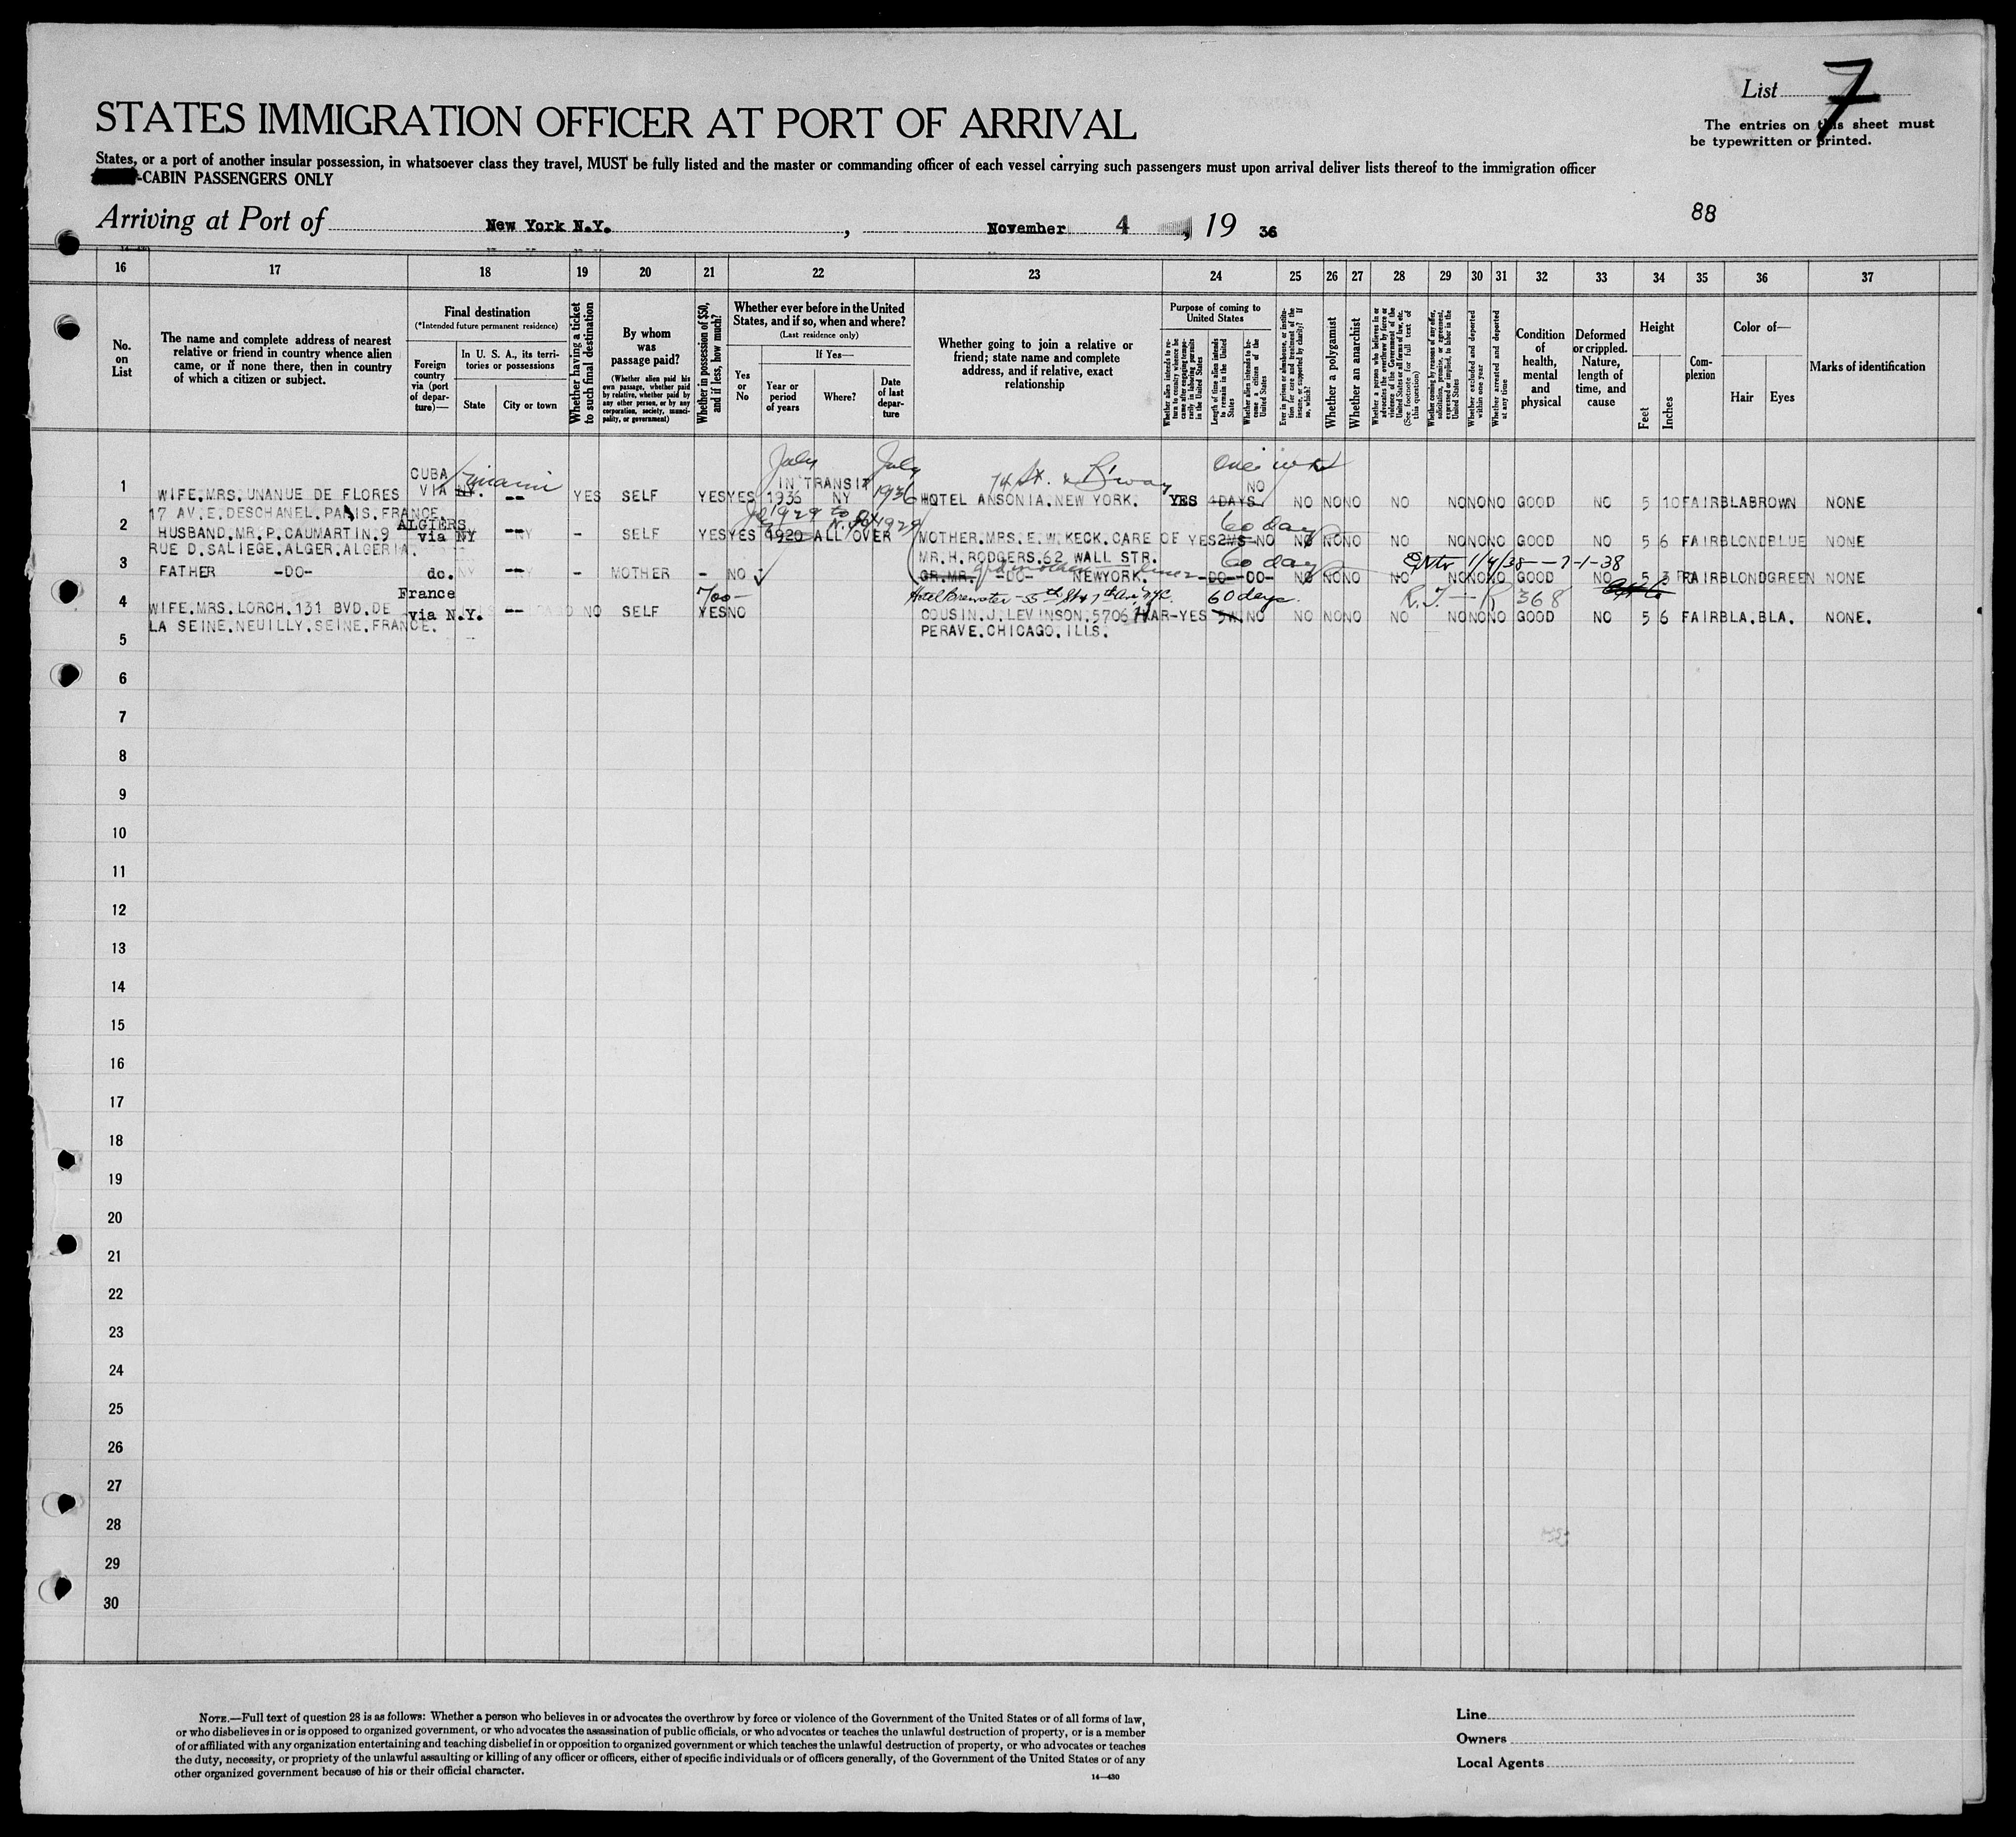 List 7
STATES IMMIGRATION OFFICER AT PORT OF ARRIVAL
The entries on this sheet must
be typewritten or printed.
States, or a port of another insular possession, in whatsoever class they travel, MUST be fully listed and the master or commanding officer of each vessel carrying such passengers must upon arrival deliver lists thereof to the immigration officer
-CABIN PASSENGERS ONLY
88
Arriving at Port of New York N.Y. , November 4 , 19 36
16 17 18 19 20 21 22 23 24 25 26 27 28 29 30 31 32 33 34 35 36 37
No. on List
The name and complete address of nearest
relative or friend in country whence alien
came, or if none there, then in country
of which a citizen or subject.
Final destination
(*Intended future permanent residence)
Foreign country via (port of departure)—
In U. S. A., its territories or possessions
State
City or town
Whether having a ticket to such final destination
By whom was passage paid?
(Whether alien paid his own passage, whether paid by relative, whether paid by any other person, or by any corporation, society, municipality, or government)
Whether in possession of $50, and if less, how much?
Whether ever before in the United States, and if so, when and where?
(Last residence only)
Yes or No
If Yes—
Year or period of years
Where?
Date of last departure
Whether going to join a relative or
friend; state name and complete
address, and if relative, exact
relationship
Purpose of coming to United States
Whether alien intends to return to country whence he came after engaging temporarily in laboring pursuits in the United States
Length of time alien intends to remain in the United States
Whether alien intends to become a citizen of the United States
Ever in prison or almshouse, or institution for care and treatment of the insane, or supported by charity? If so, which?
Whether a polygamist
Whether an anarchist
Whether a person who believes in or advocates the overthrow by force or violence of the Government of the United States or all forms of law, etc. (See footnote for full text of this question)
Whether coming by reason of any offer, solicitation, promise, or agreement, expressed or implied, to labor in the United States
Whether excluded and deported within one year
Whether arrested and deported at any time
Condition of health, mental and physical
Deformed or crippled. Nature, length of time, and cause
Height
Feet
Inches
Complexion
Color of—
Hair
Eyes
Marks of identification
July July 74 St. & B'way
CUBA Miami IN TRANSIT NO
1 WIFE.MRS.UNANUE DE FLORES VIA NY. -- YES SELF YES YES 1936 NY 1936 HOTEL ANSONIA.NEW YORK. YES DAYS NO NO NO NO NO NO NO GOOD NO 5 10 FAIR BLA BROWN NONE
17 AV.E.DESCHANEL.PARIS.FRANCE.
ALGIERS 1929 to 1929 60 days
2 HUSBAND.MR.P.CAUMARTIN.9 via NY -- - SELF YES YES 1920 ALL OVER MOTHER.MRS.E.W.KECK.CARE OF YES 2MS NO NO NO NO NO NO NO NO GOOD NO 5 6 FAIR BLOND BLUE NONE
RUE D.SALIEGE.ALGER.ALGERIA. MR.H.RODGERS.62 WALL STR. 60 days 1/4/38 — 7-1-38
3 FATHER -DO- do. -- - MOTHER - NO GR.MR. -DO- NEWYORK. grandmother -DO- -DO- NO NO NO NO NO NO NO GOOD NO 5 3 FAIR BLOND GREEN NONE
France 700- Hotel Brewster - 55th St & 7th Ave NYC. 60 days. 368
4 WIFE.MRS.LORCH.131 BVD.DE via N.Y. -- NO SELF YES NO COUSIN.J.LEVINSON.5706 HAR- YES NO NO NO NO NO NO NO NO GOOD NO 5 6 FAIR BLA. BLA. NONE.
LA SEINE.NEUILLY.SEINE.FRANCE. PERAVE.CHICAGO.ILLS.
5
6
7
8
9
10
11
12
13
14
15
16
17
18
19
20
21
22
23
24
25
26
27
28
29
30
NOTE.—Full text of question 28 is as follows: Whether a person who believes in or advocates the overthrow by force or violence of the Government of the United States or of all forms of law,
or who disbelieves in or is opposed to organized government, or who advocates the assassination of public officials, or who advocates or teaches the unlawful destruction of property, or is a member
of or affiliated with any organization entertaining and teaching disbelief in or opposition to organized government or which teaches the unlawful destruction of property, or who advocates or teaches
the duty, necessity, or propriety of the unlawful assaulting or killing of any officer or officers, either of specific individuals or of officers generally, of the Government of the United States or of any
other organized government because of his or their official character.
14—430
Line
Owners
Local Agents